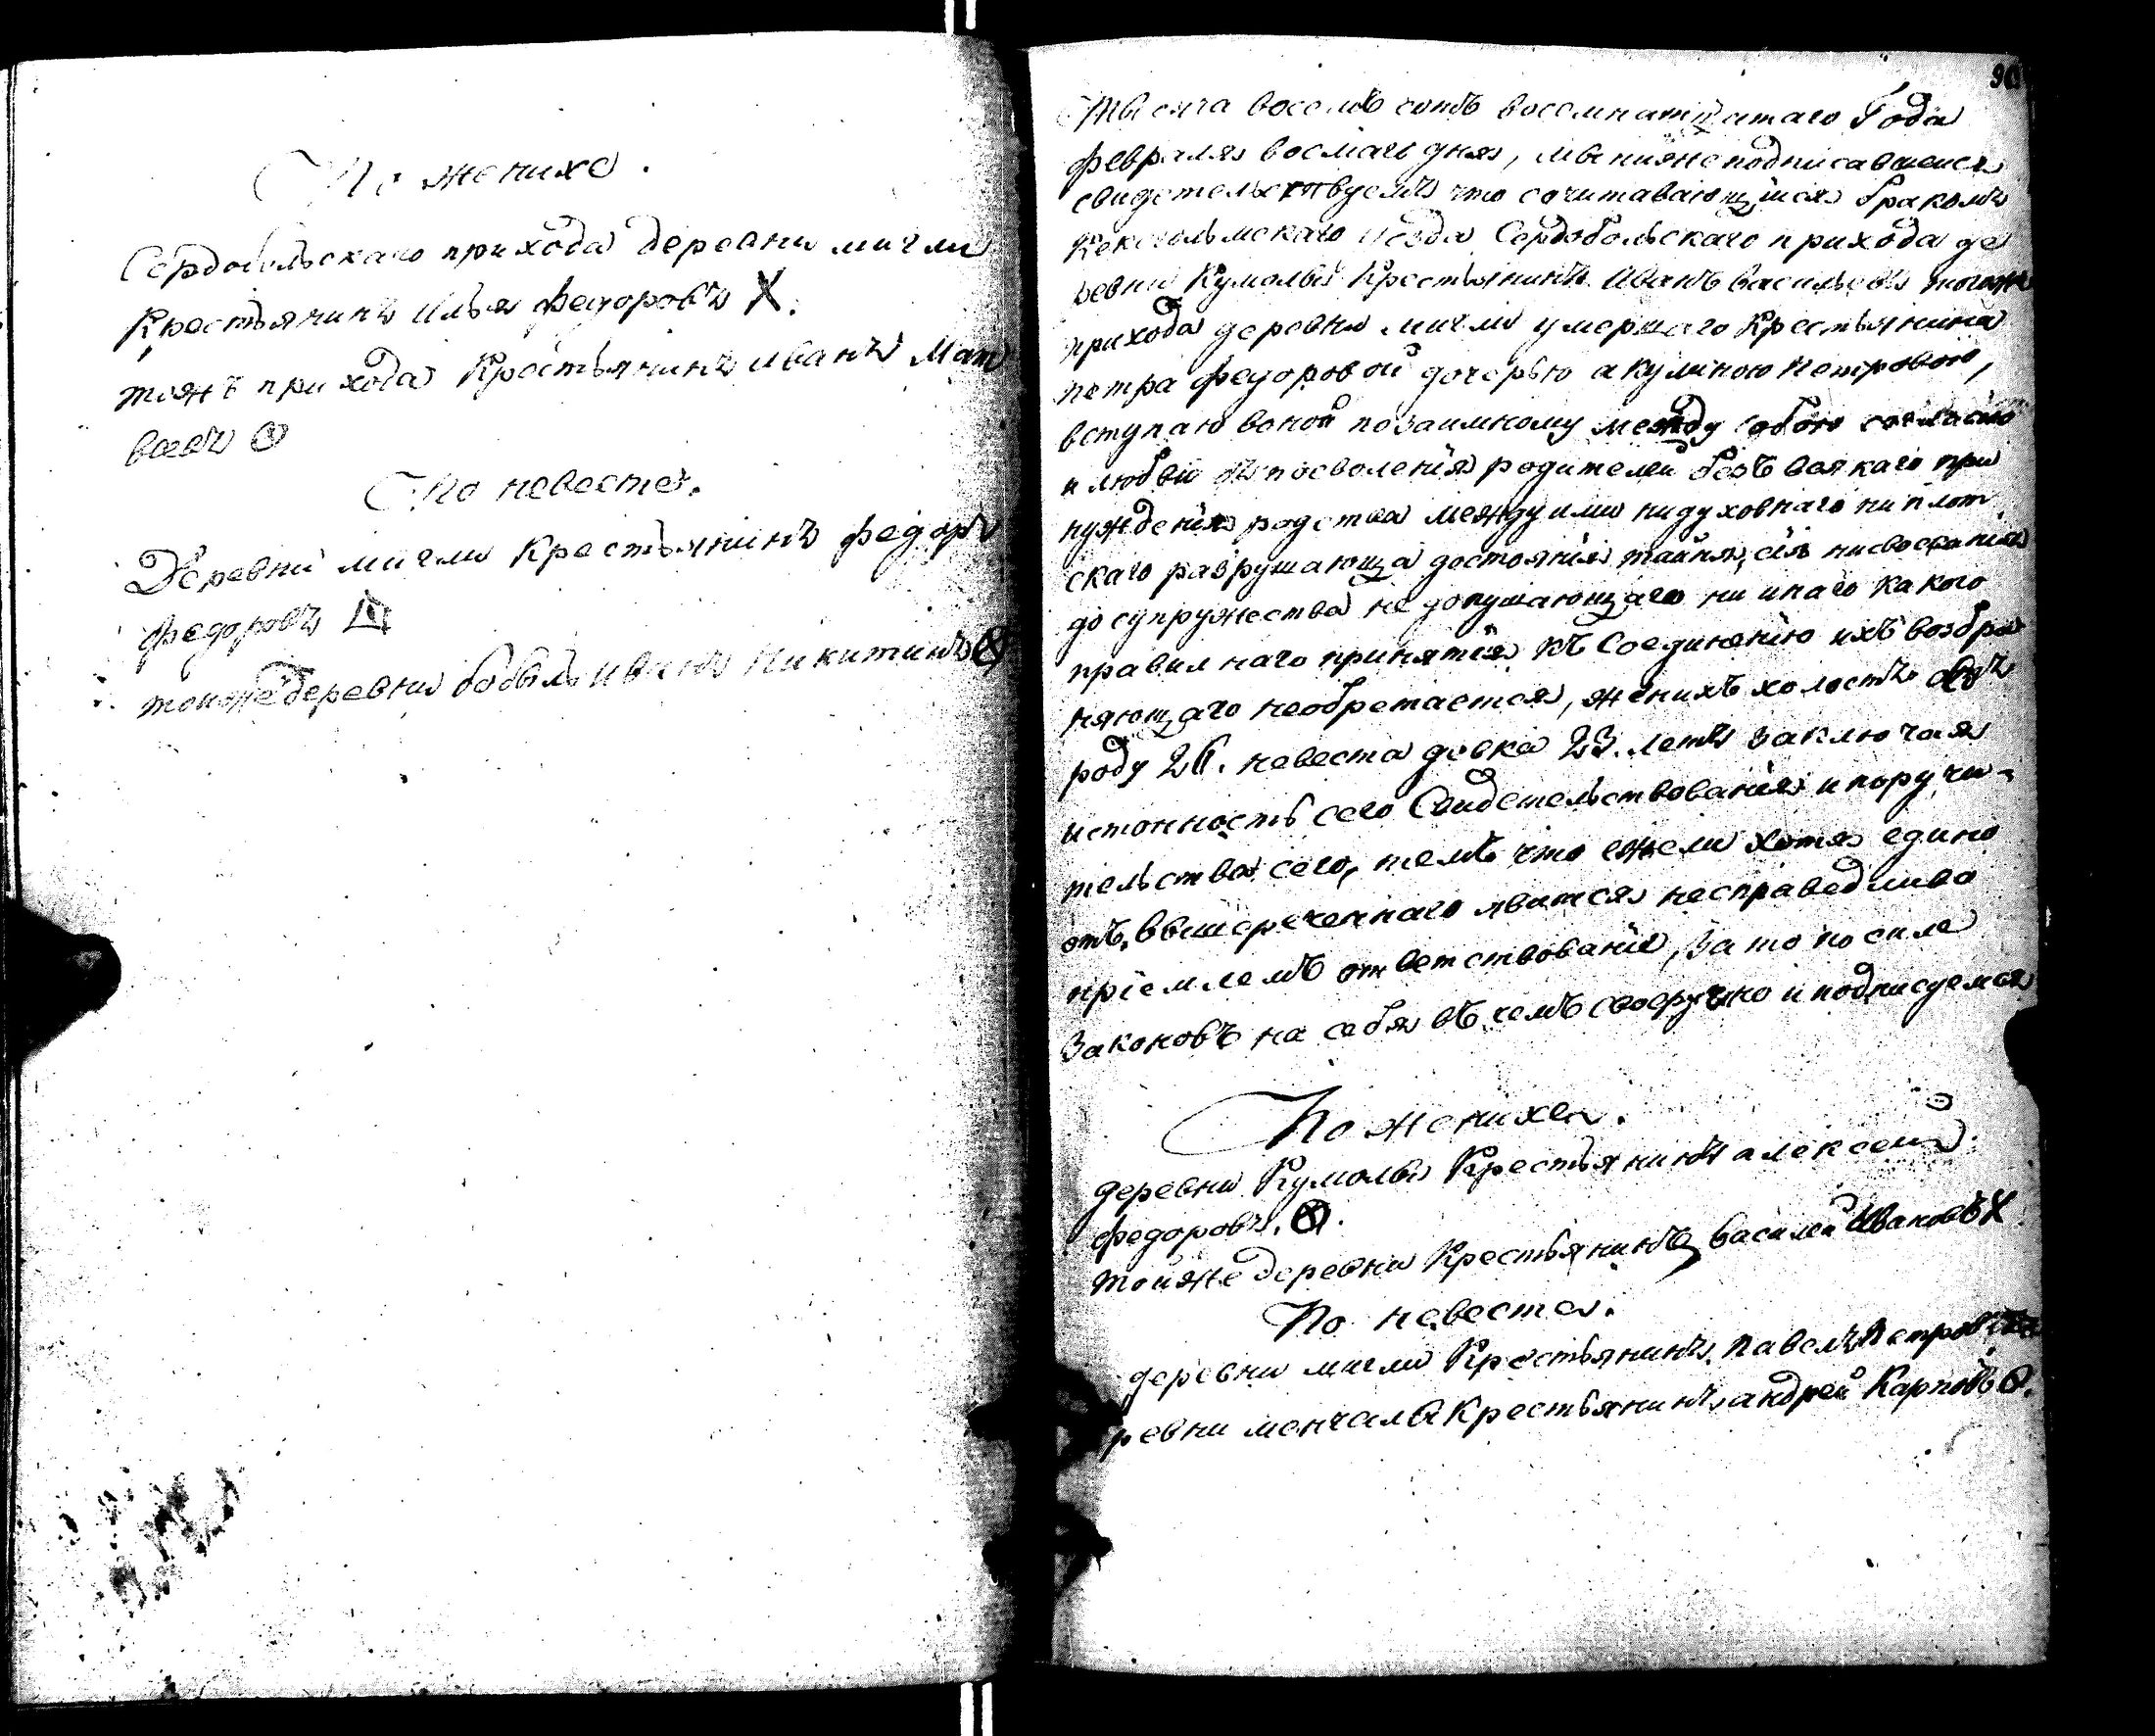 По женихе.
Сердобольскаго прихода деревни мигли
Крестьянинъ Илья федоровъ Х.
тоижъ прихода Крестьянинъ иванъ Мат
веевъ
По невесте.
Деревни мигли Крестьянинъ федоръ
федоровъ
тоиже деревни бобыль иванъ Никитинъ
90
Тысяча восемь сотъ восемнатцатаго Года
февраля восмаго дня, мы нижеподписавшиеся
свидетельствуемъ что сочитавающийся бракомъ
Кексгольмскаго уезда Сердобольскаго прихода де
ревни Кумолы Крестьянинъ Иванъ васильевъ тогоже
прихода деревни мигли умершаго Крестьянина
петра федоровой дочерью акулиною петровою,
вступаю воной повзаимному между собою согласию
и любви спозволения родителей безъ всякаго при
нуждения родства между ими нидуховнаго ни плот
скаго разрушающа достояния таиня, сия нисвоствания
до супружества не допущающаго ни инаго какого
правилнаго принятия къ Соединению ихъ возбра
няющаго необретается, женихъ холостъ отъ
роду 26. невеста девка 23. летъ заключая
истонность сего Свидетельствования и поручи-
тельства сего, темъ что ежели хотя едино
отъ вышереченнаго явится несправедливо
приемлемъ ответствование, за то по силе
Законовъ на себя въ чемъ своеручно и подписуемся
По женихе.
деревни Кумолы Крестьянинъ алексей
федоровъ.
тойже деревни Крестьянинъ василей Ивановъ Х
По невесте.
деревни мигли Крестьянинъ павелъ петровъ
ревни Крестьянинъ андрей Карповъ